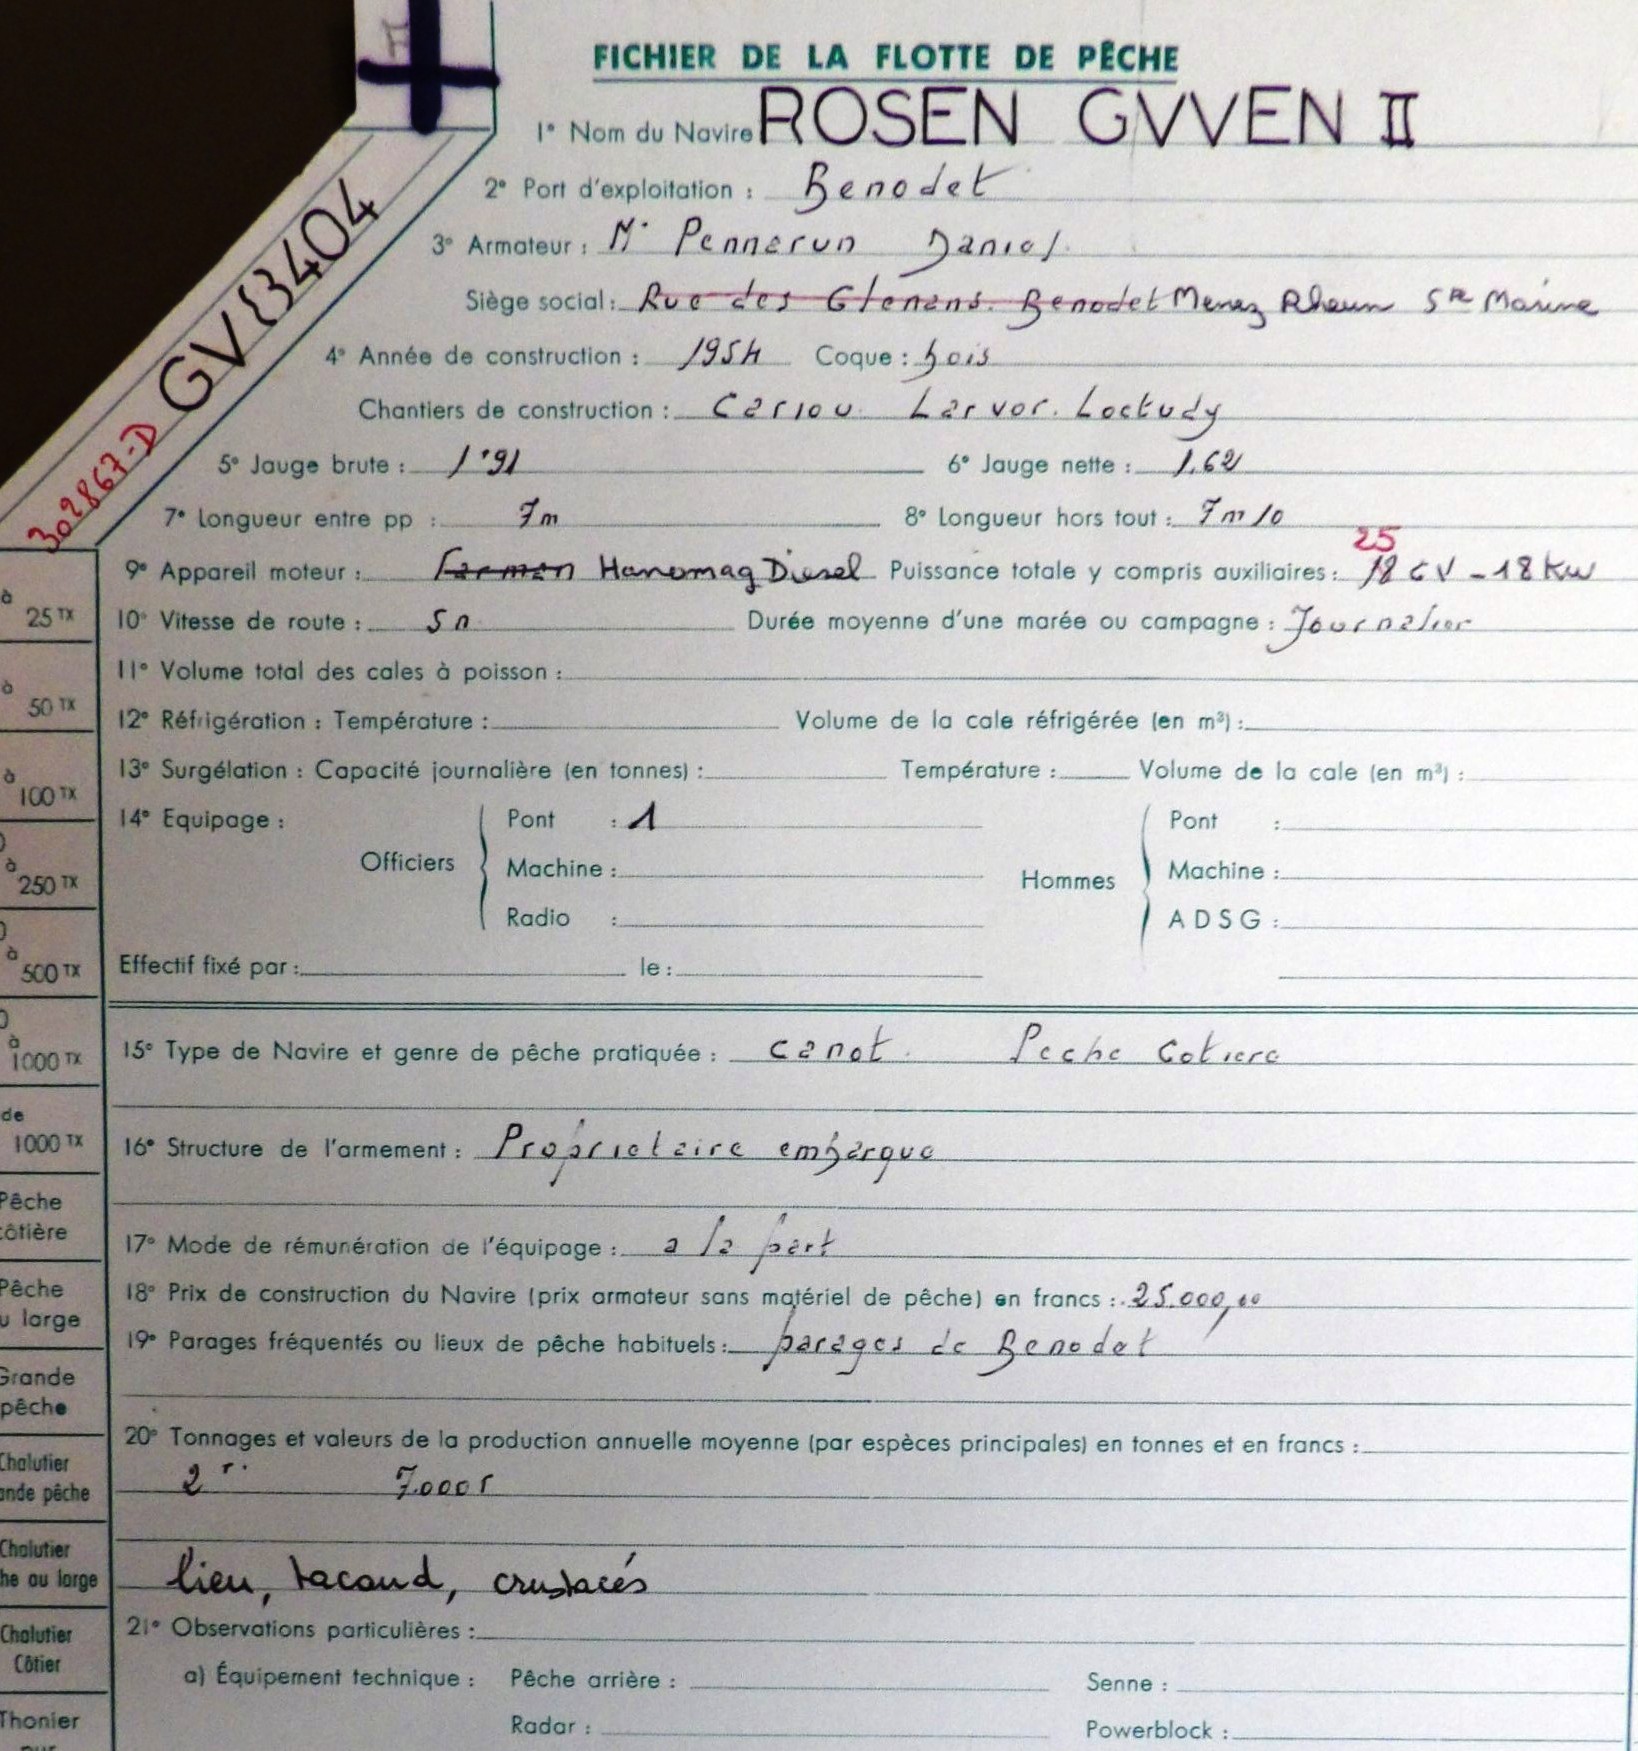 FICHIER DE LA FLOTTE DE PÊCHE
1° Nom du Navire ROSEN GVVEN II
2° Port d'exploitation : Benodet
3° Armateur : Mr Pennarun Daniel
Siège social : Rue des Glenans. Benodet Menez Rheun Ste Marine
4° Année de construction : 1954 Coque : bois
Chantiers de construction : Cariou Larvor. Loctudy
GV 3404
302867-D
5° Jauge brute : 1'91 6° Jauge nette : 1,62
7° Longueur entre pp : 7m 8° Longueur hors tout : 7m10
25
9° Appareil moteur : Farman Hanomag Diesel Puissance totale y compris auxiliaires : 18 CV - 18 KW
10° Vitesse de route : 5n Durée moyenne d'une marée ou campagne : Journalier
11° Volume total des cales à poisson :
12° Réfrigération : Température : Volume de la cale réfrigérée (en m³) :
13° Surgélation : Capacité journalière (en tonnes) : Température : Volume de la cale (en m³) :
14° Equipage :
Officiers
Pont : 1
Machine :
Radio :
Hommes
Pont :
Machine :
A D S G :
Effectif fixé par : le :
15° Type de Navire et genre de pêche pratiquée : canot. Peche Cotiere
16° Structure de l'armement : Proprietaire embarque
17° Mode de rémunération de l'équipage : a la part
18° Prix de construction du Navire (prix armateur sans matériel de pêche) en francs : 25.000,00
19° Parages fréquentés ou lieux de pêche habituels : parages de Benodet
20° Tonnages et valeurs de la production annuelle moyenne (par espèces principales) en tonnes et en francs :
2 T. 7.000 F
lieu, tacaud, crustacés
21° Observations particulières :
a) Équipement technique : Pêche arrière : Senne :
Radar : Powerblock :
à
25 TX
à
50 TX
à
100 TX
à
250 TX
à
500 TX
à
1000 TX
de
1000 TX
Pêche
côtière
Pêche
u large
Grande
pêche
Chalutier
ande pêche
Chalutier
he au large
Chalutier
Côtier
Thonier